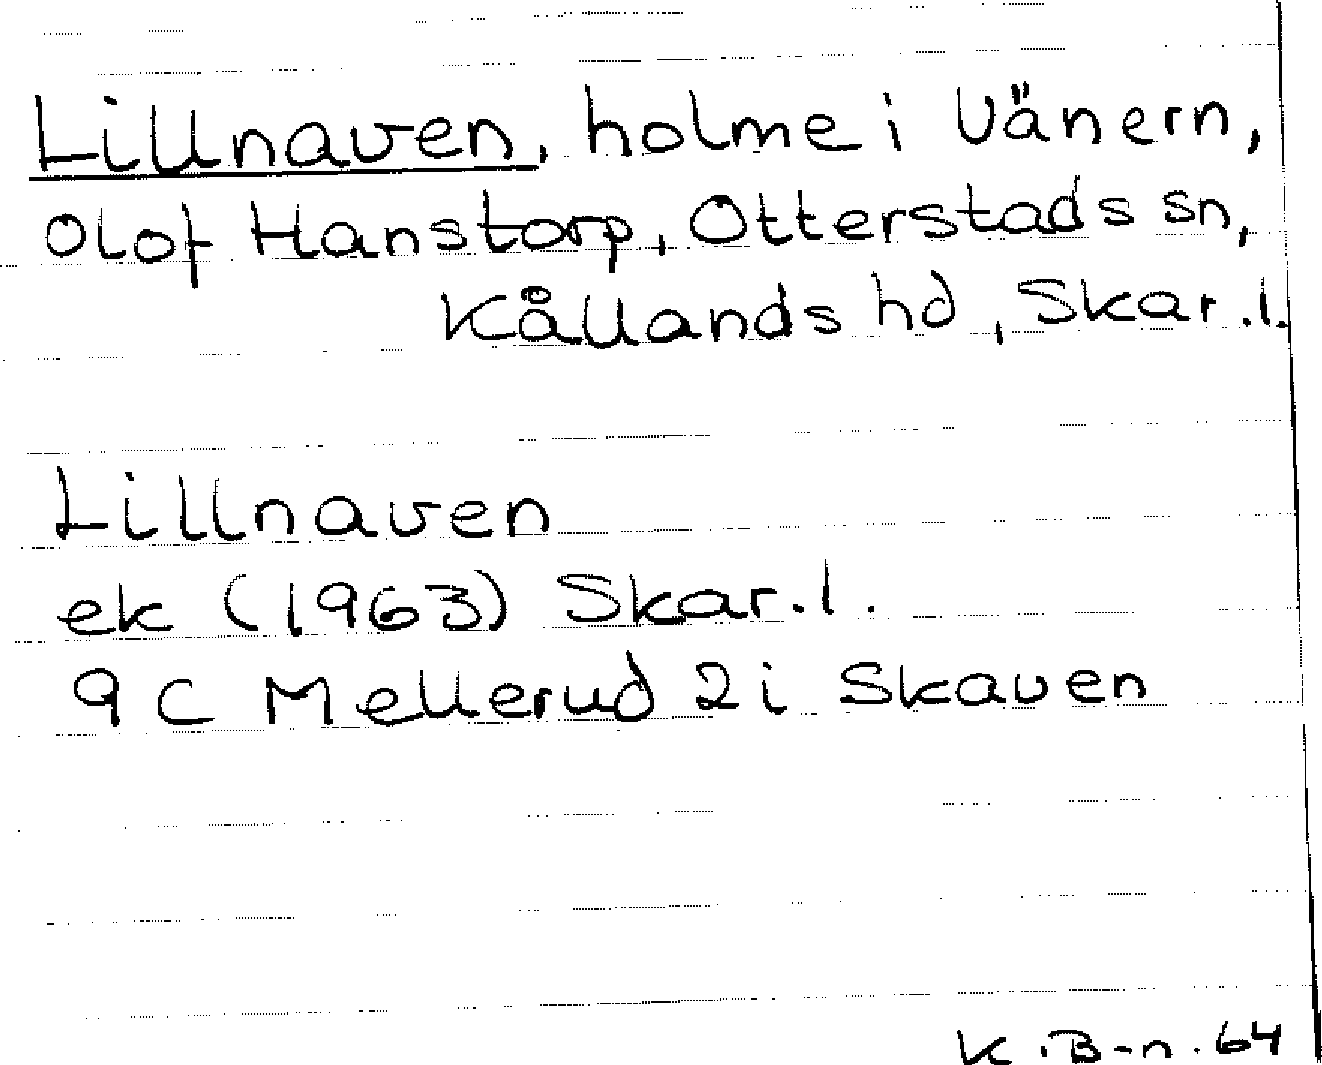 Lillnaven, holme i Vänern,
Olof Hanstorp, Otterstads sn,
Kållands hd, Skar.l.
Lillnaven
ek (1963) Skar.l.
9C Mellerud 2i Skaven
K.B-n.64